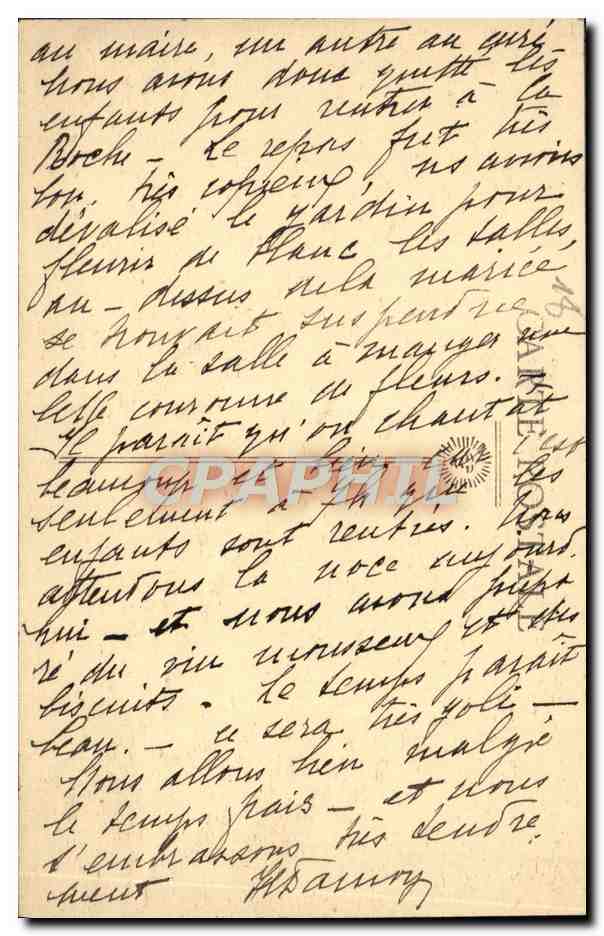 au maire, un autre au curé
Nous avons donc quitté les
enfants pour rentrer à la
Roche - Le repas fut très
bon, très copieux, ns avions
dévalisé le jardin pour
fleurir de blanc les salles,
au-dessus de la mariée,
se trouvait suspendue
dans la salle à manger une
belle couronne de fleurs.
Il paraît qu'on chantait
beaucoup et bien c'est
seulement à 7h que les
enfants sont rentrés. Nous
attendons la noce aujourd'
hui - et nous avons prépa
ré du vin mousseux et des
biscuits. Le temps paraît
beau. - ce sera très joli -
Nous allons bien malgré
le temps frais - et nous
t'embrassons très tendre
ment
18
CARTE POSTALE
CPAPHIL